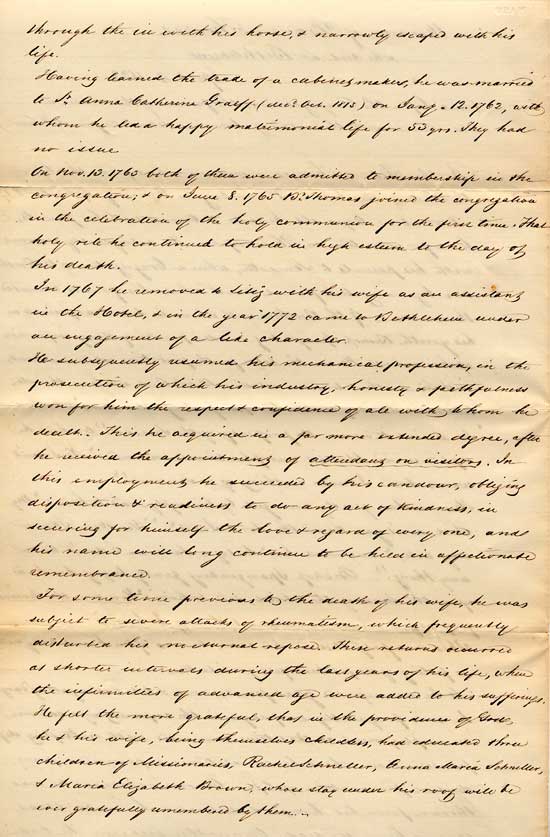 through the ice with his horse, & narrowly escaped with his
life.
Having learned the trade of a cabinet makers, he was married
to Sr. Anna Catherine Graeff (dec. Oct. 1815) on Jany. 12. 1762, with
whom he led a happy matrimonial life for 53 yrs. They had
no issue
On Nov. 13. 1763 both of them were admitted to membership in the
congregation; & on June 8. 1765 Br. Thomas joined the congregation
in the celebration of the holy communion for the first time. That
holy rite he continued to hold in high esteem to the day of
his death.
In 1767 he removed to Litiz with his wife as an assistant
in the Hotel, & in the year 1772 came to Bethlehem under
an engagement of a like character.
He subsequently resumed his mechanical profession, in the
prosecution of which his industry, honesty & faithfulness
won for him the respect & confidence of all with whom he
dealt. This he acquired in a far more extended degree, after
he received the appointment of attendant on visitors. In
this employment he succeeded by his candour, obliging
disposition & readiness to do any act of kindness, in
securing for himself the love & regard of every one, and
his name will long continue to be held in affectionate
remembrance.
For some time previous to the death of his wife, he was
subject to severe attacks of rheumatism, which frequently
disturbed his nocturnal repose. These returns occurred
at shorter intervals during the last years of his life, when
the infirmities of advanced age were added to his sufferings.
He felt the more grateful, that in the providence of God,
he & his wife, being themselves childless, had educated three
children of Missionaries, Rachel Schneller, Anna Maria Schneller,
& Maria Elizabeth Brown, whose stay under his roof will be
ever gratefully remembered by them.